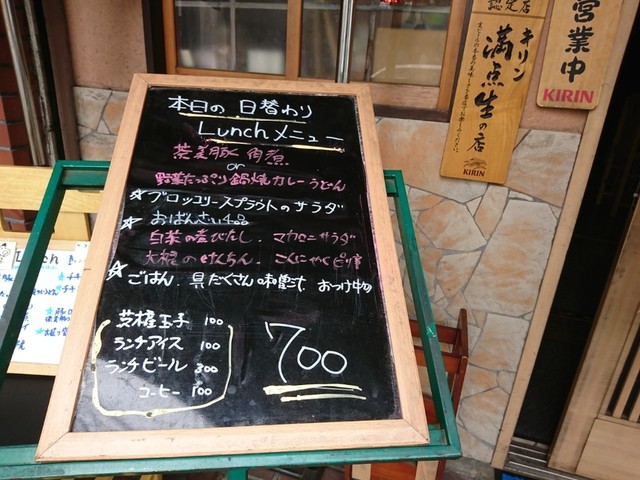 本日の 日替わり
Lunchメニュー
豚 角煮
or
野菜たっぷり鍋焼カレーうどん
☆ブロッコリースプラウトのサラダ
☆おばんざい4品
白菜の煮びたし、マカロニサラダ
大根の けんちん、こんにゃくピリ辛
☆ごはん、具だくさん味噌汁、おつけ物
玉子 100
ランチアイス 100
ランチビール 300
コーヒー 100
700
認定店
キリン
満点生の店
KIRIN
営業中
KIRIN
Lunch